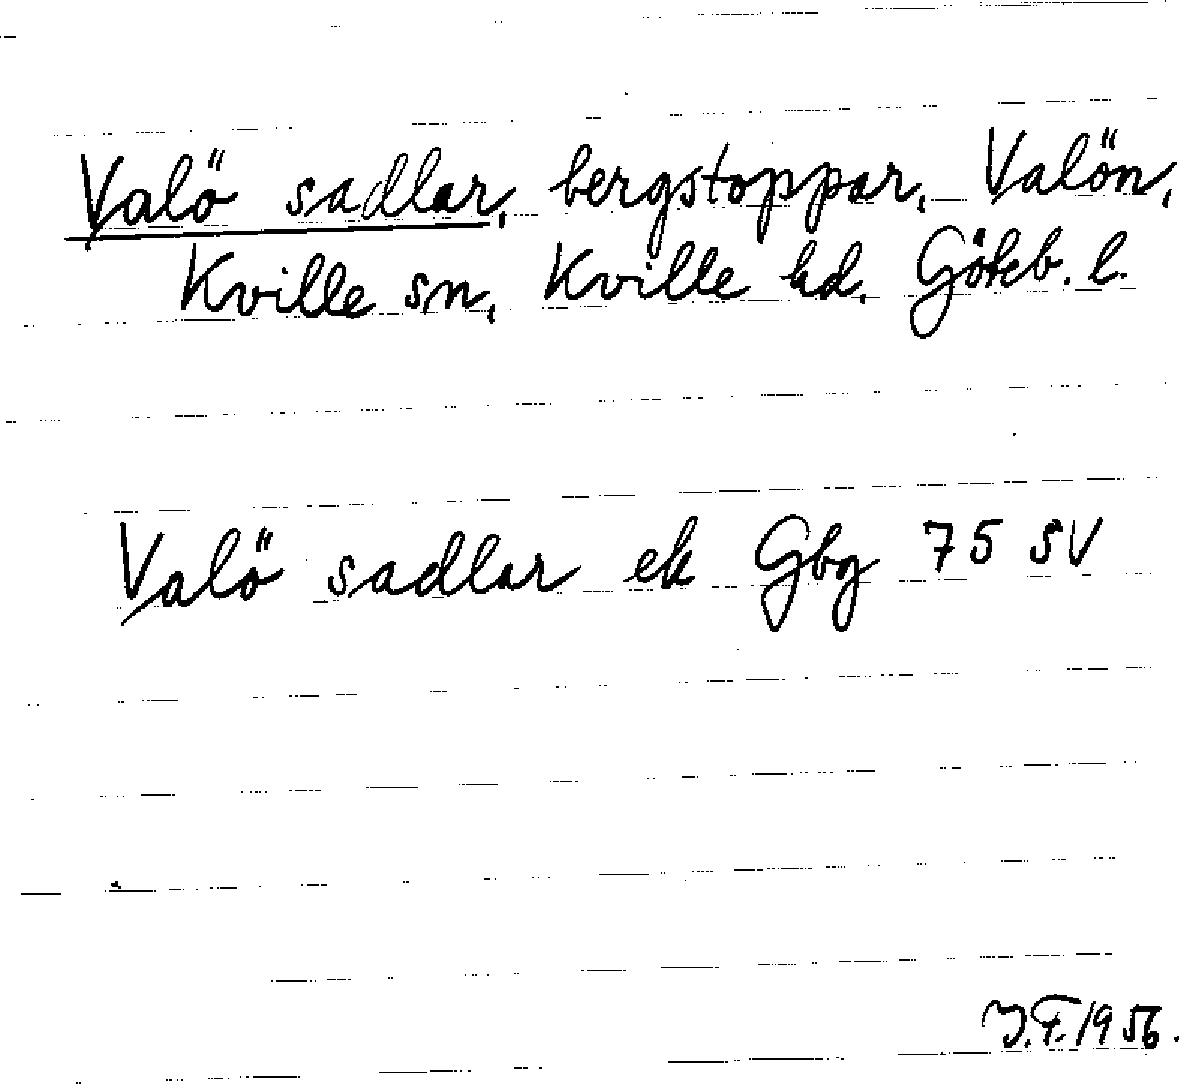 Valö sadlar, bergstoppar, Valön,
Kville sn, Kville hd. Göteb. l.
Valö sadlar ek Gbg 75 SV
J.F. 1956.